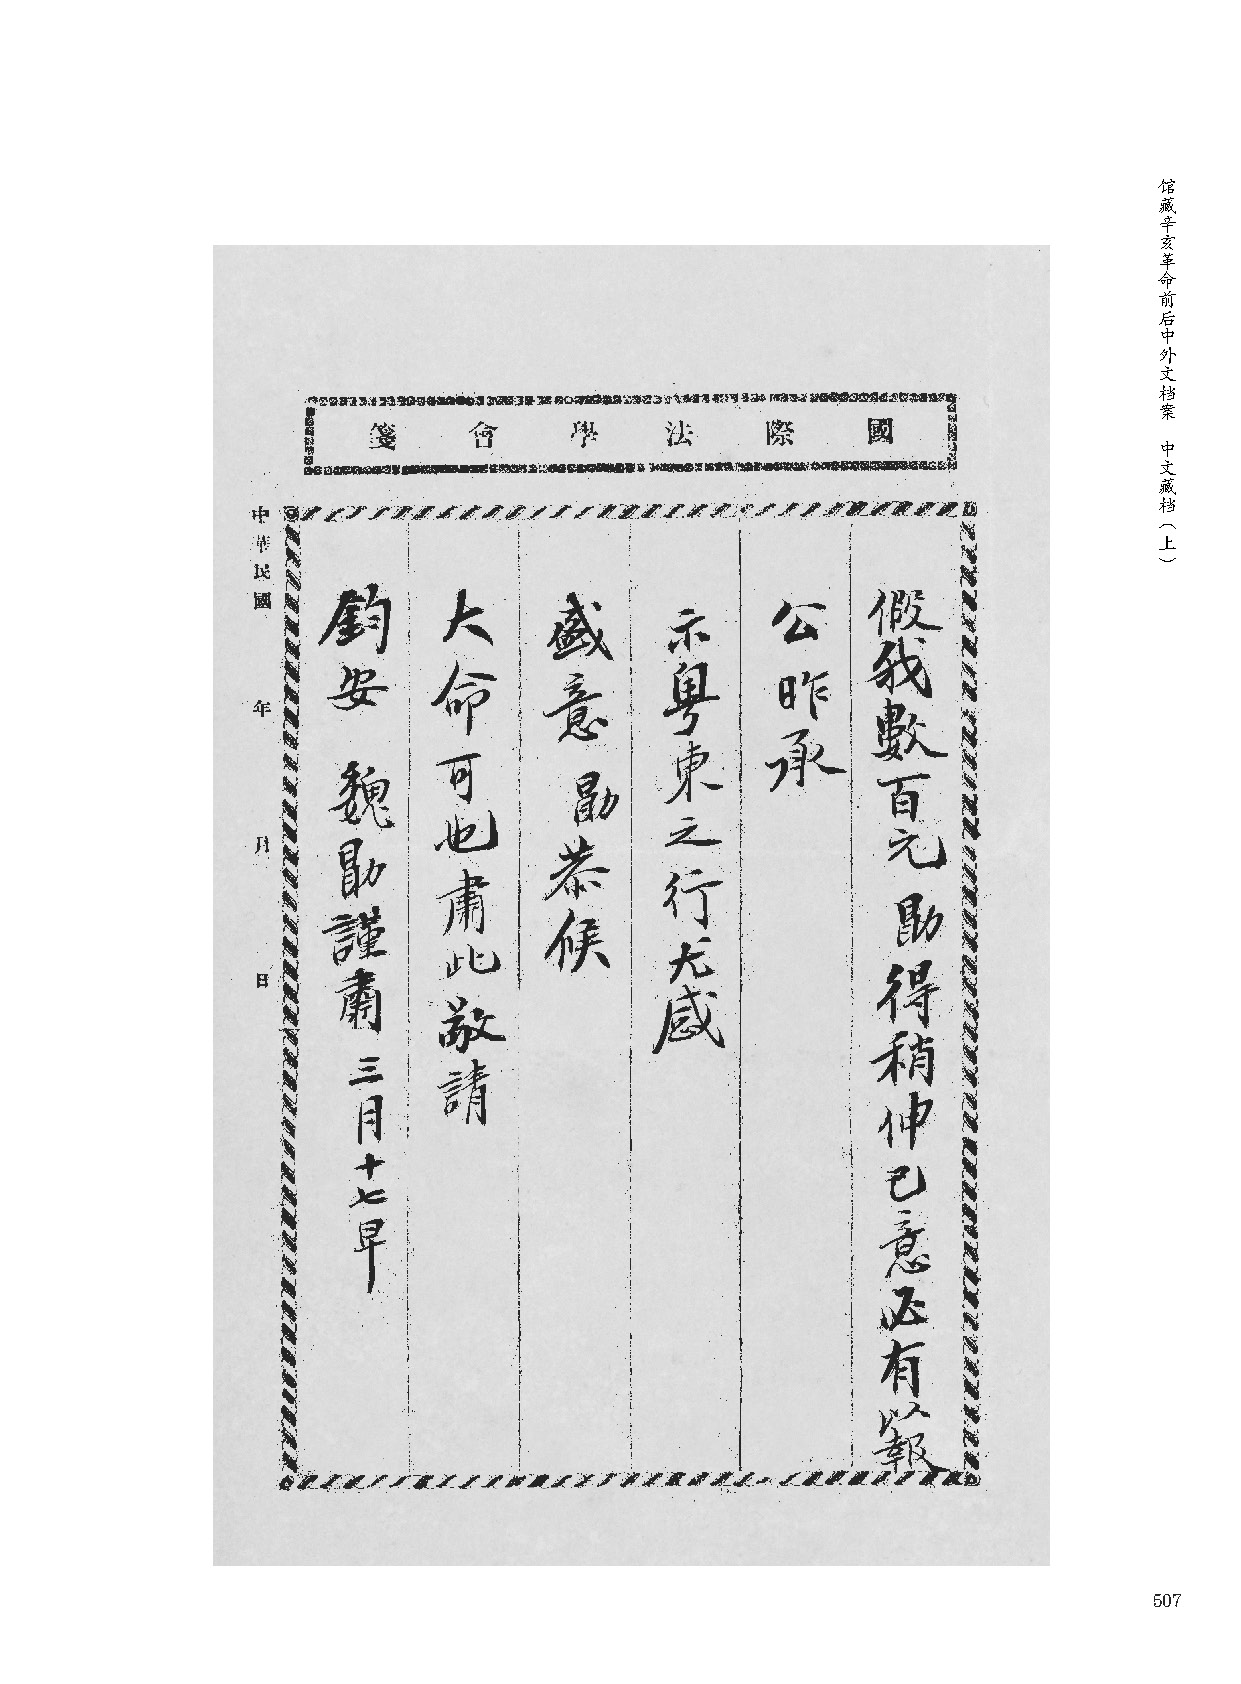 馆藏辛亥革命前后中外文档案 中文藏档（上）
國際法學會箋
假我數百元勖得稍伸己意必有以報
公昨承
示粵東之行尤感
盛意勖恭候
大命可也肅此敬請
鈞安 魏勖謹肅 三月十七早
中華民國 年 月 日
507